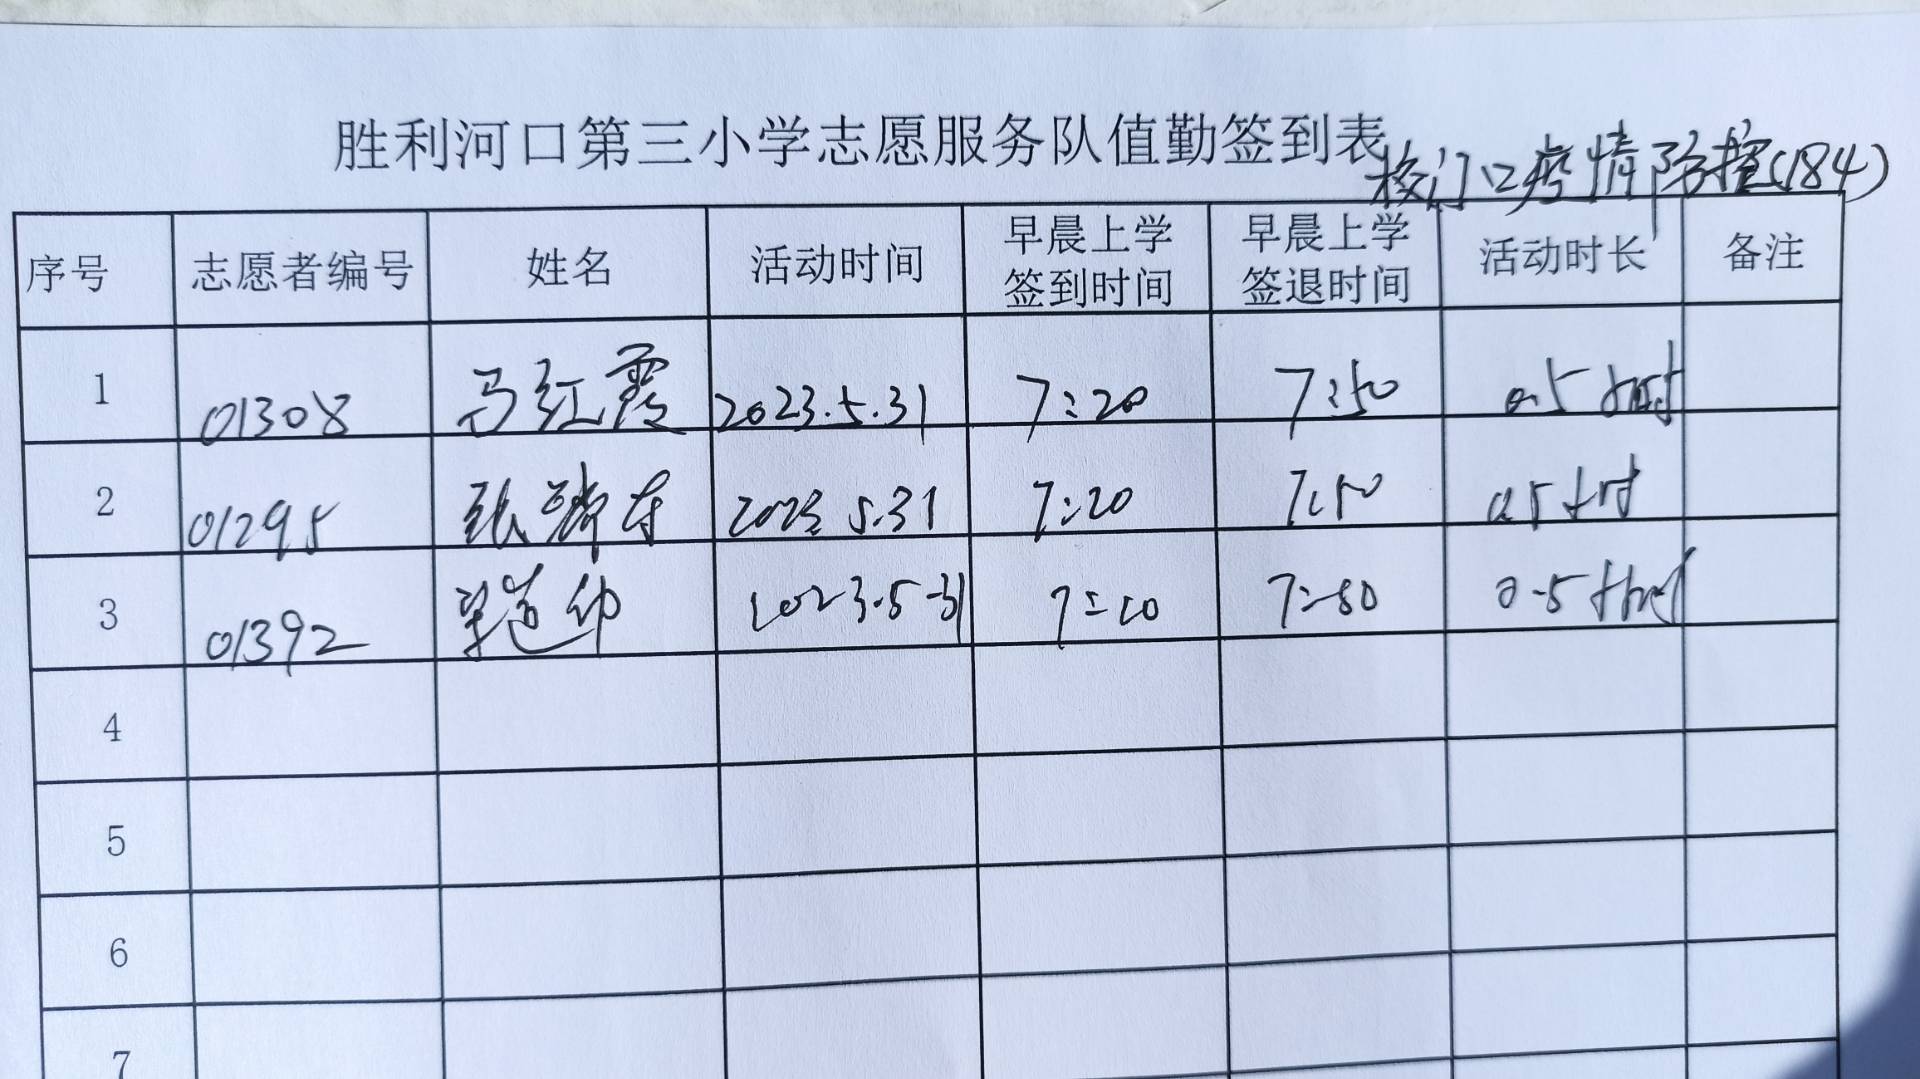 胜利河口第三小学志愿服务队值勤签到表
校门口疫情防控(184)
序号 志愿者编号 姓名 活动时间 早晨上学签到时间 早晨上学签退时间 活动时长 备注
1 01308 马红霞 2023.5.31 7:20 7:50 0.5小时
2 01295 张 2023 5.31 7:20 7:50 0.5小时
3 01392 2023.5.31 7:20 7:50 0.5小时
4
5
6
7